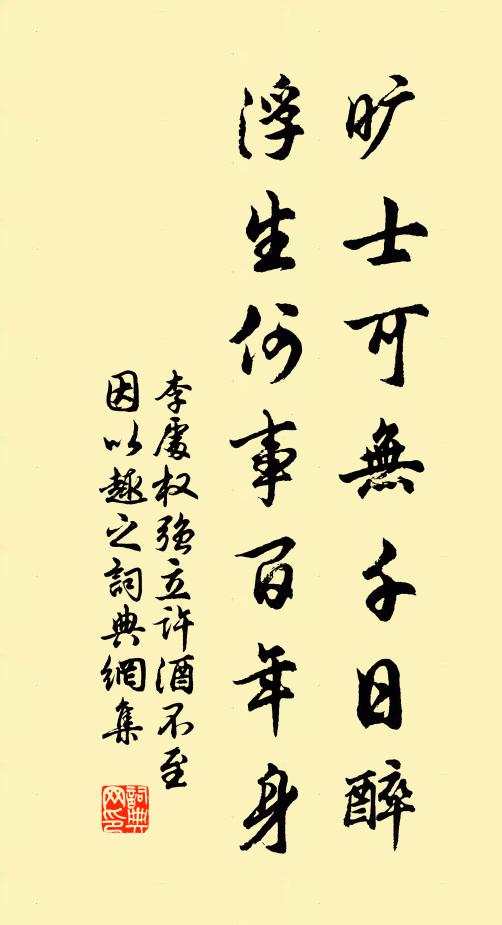 旷士可無千日醉
浮生何事百年身
李處权強立许酒不至
因以趣之詞典網集
詞典网印